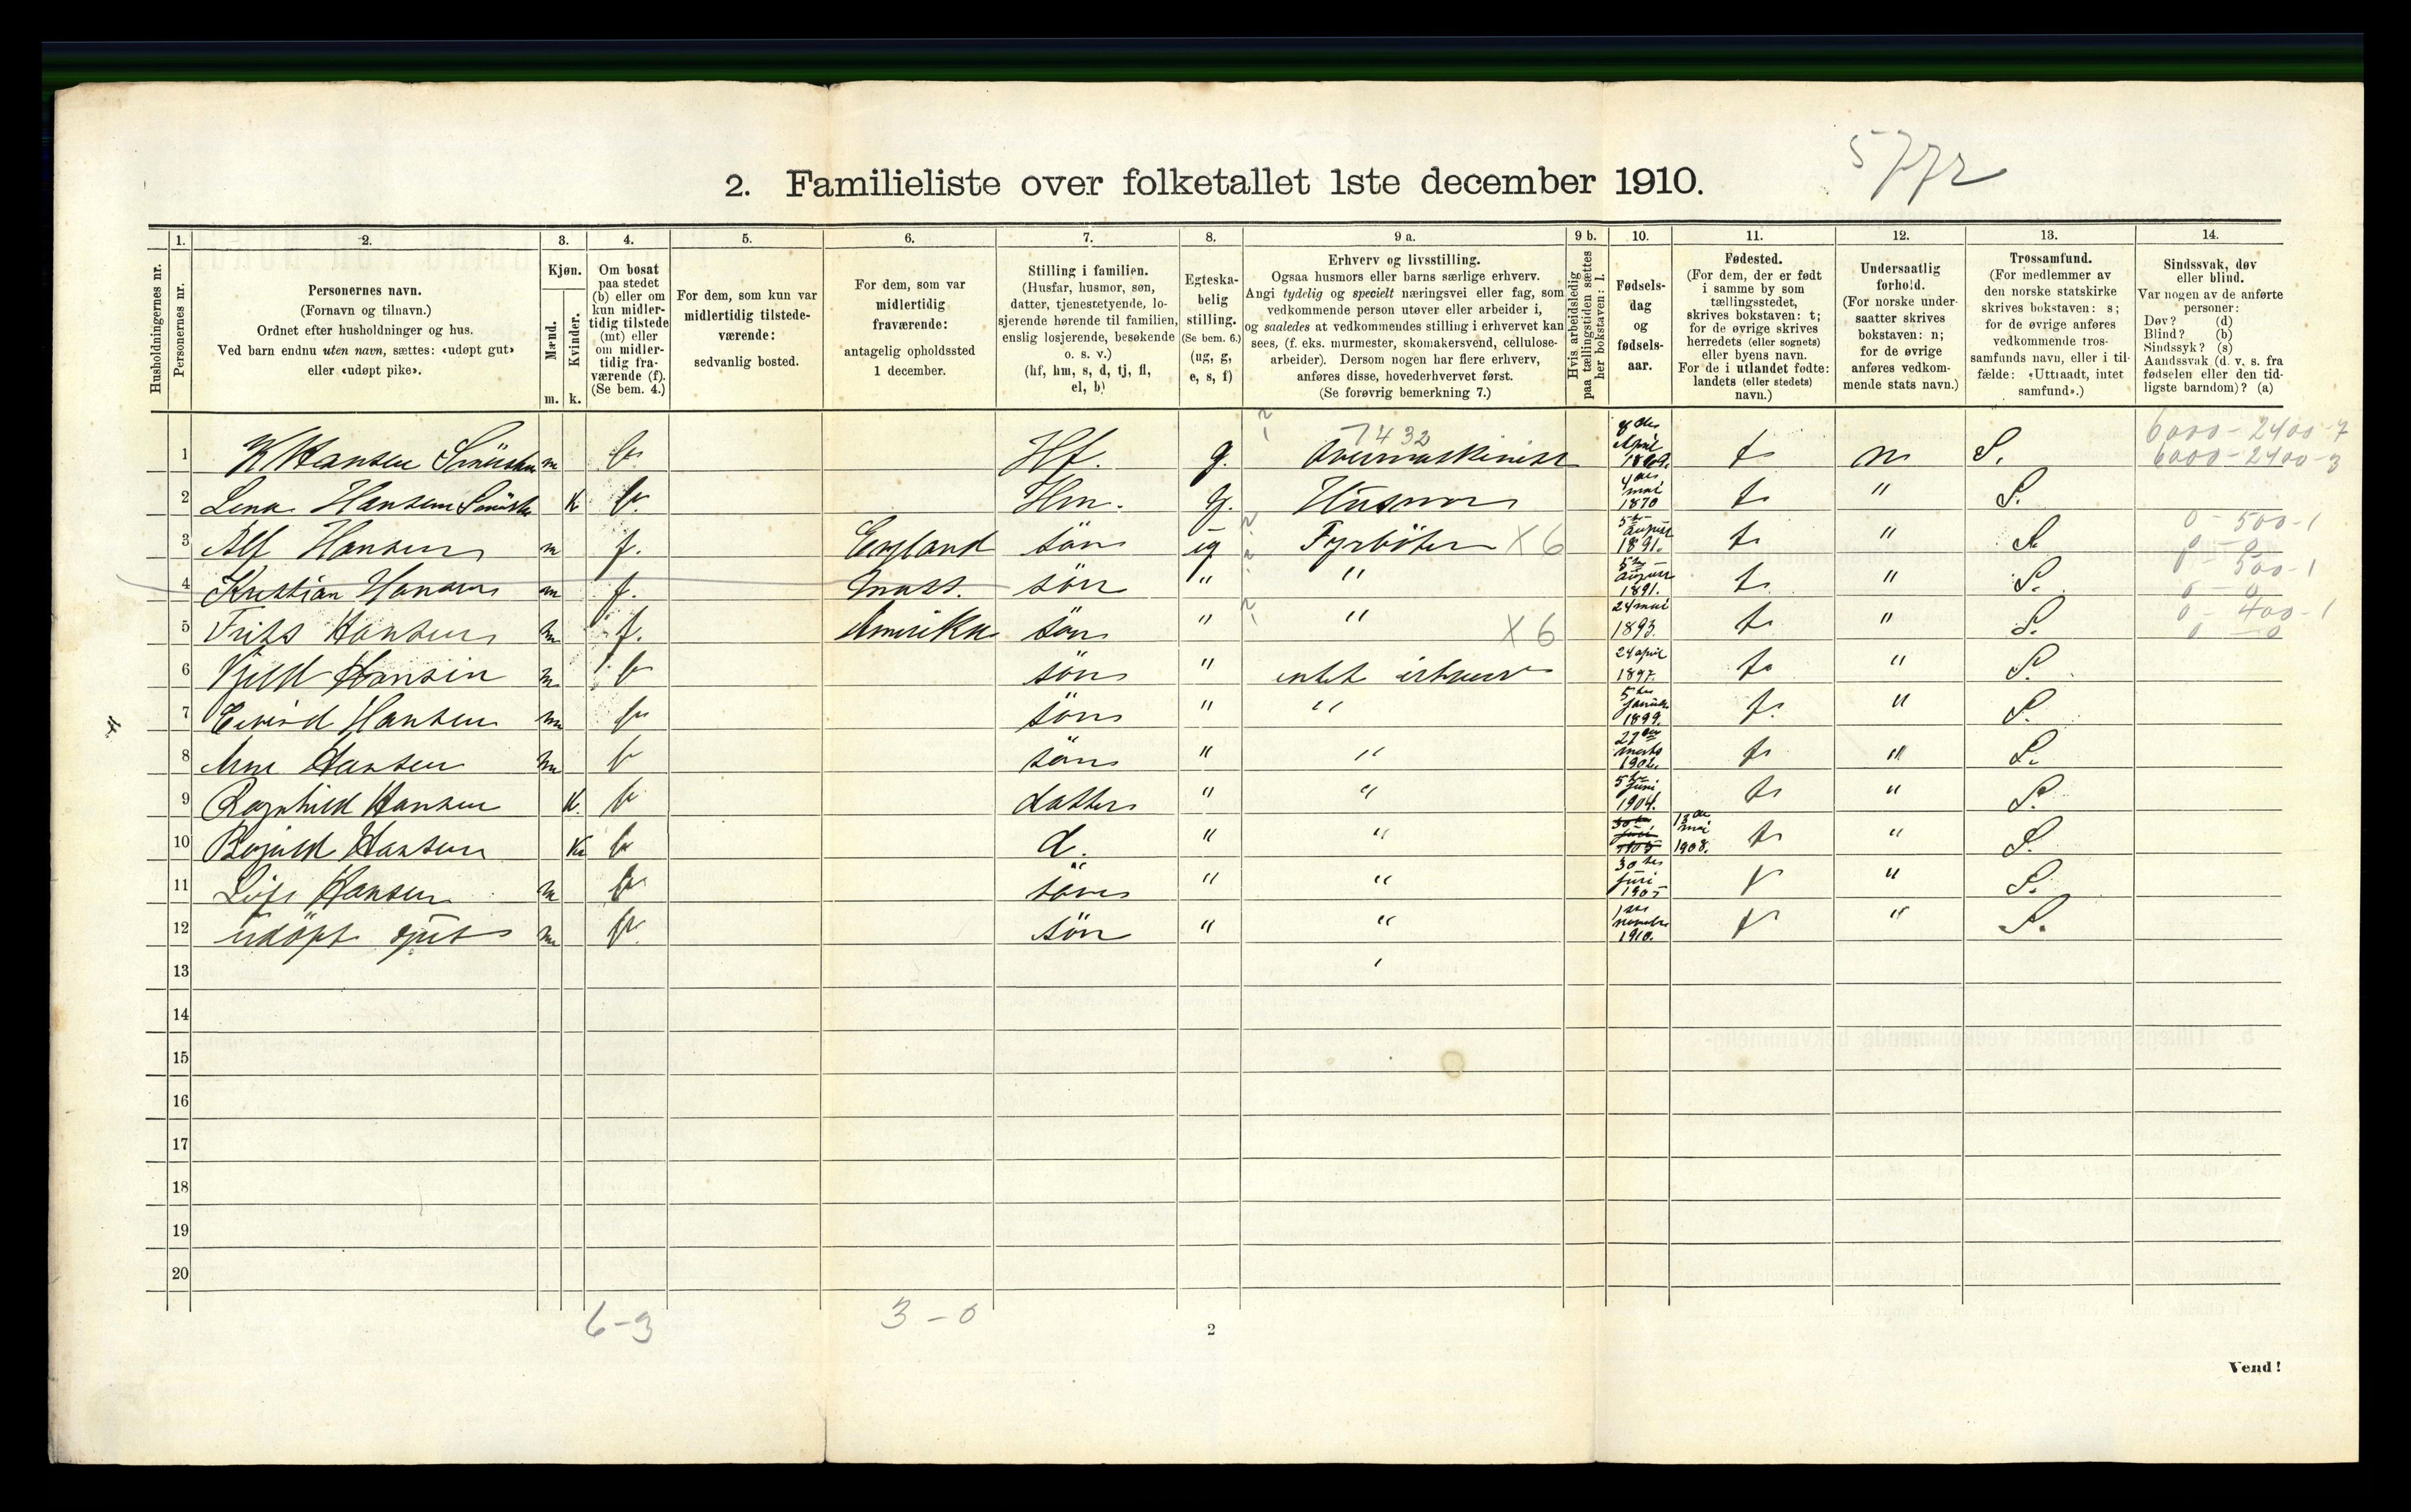 2. Familieliste over folketallet 1ste december 1910.
1. 2. 3. 4. 5. 6. 7. 8. 9 a. 9 b. 10. 11. 12. 13. 14.
Husholdningernes nr.
Personernes nr.
Personernes navn.
(Fornavn og tilnavn.)
Ordnet efter husholdninger og hus.
Ved barn endnu uten navn, sættes: «udøpt gut»
eller «udøpt pike».
Kjøn.
Mænd.
Kvinder.
m. k.
Om bosat
paa stedet
(b) eller om
kun midler-
tidig tilstede
(mt) eller
om midler-
tidig fra-
værende (f).
(Se bem. 4.)
For dem, som kun var
midlertidig tilstede-
værende:
sedvanlig bosted.
For dem, som var
midlertidig
fraværende:
antagelig opholdssted
1 december.
Stilling i familien.
(Husfar, husmor, søn,
datter, tjenestetyende, lo-
sjerende hørende til familien,
enslig losjerende, besøkende
o. s. v.)
(hf, hm, s, d, tj, fl,
el, b)
Egteska-
belig
stilling.
(Se bem. 6.)
(ug, g,
e, s, f)
Erhverv og livsstilling.
Ogsaa husmors eller barns særlige erhverv.
Angi tydelig og specielt næringsvei eller fag, som
vedkommende person utøver eller arbeider i,
og saaledes at vedkommendes stilling i erhvervet kan
sees, (f. eks. murmester, skomakersvend, cellulose-
arbeider). Dersom nogen har flere erhverv,
anføres disse, hovederhvervet først.
(Se forøvrig bemerkning 7.)
Hvis arbeidsledig
paa tællingstiden sættes
her bokstaven: l.
Fødsels-
dag
og
fødsels-
aar.
Fødested.
(For dem, der er født
i samme by som
tællingsstedet,
skrives bokstaven: t;
for de øvrige skrives
herredets (eller sognets)
eller byens navn.
For de i utlandet fødte:
landets (eller stedets)
navn.)
Undersaatlig
forhold.
(For norske under-
saatter skrives
bokstaven: n;
for de øvrige
anføres vedkom-
mende stats navn.)
Trossamfund.
(For medlemmer av
den norske statskirke
skrives bokstaven: s;
for de øvrige anføres
vedkommende tros-
samfunds navn, eller i til-
fælde: «Uttraadt, intet
samfund».)
Sindssvak, døv
eller blind.
Var nogen av de anførte
personer:
Døv? (d)
Blind? (b)
Sindssyk? (s)
Aandssvak (d. v. s. fra
fødselen eller den tid-
ligste barndom)? (a)
7432
6000-2400-7
6000-2400-3
1 K Hansen m b Hf. g. Overmaskinist April 1869. t n S.
2 Lena Hansen K b. Hm. g. Husmor 4 mai 1870 t " S.
0-500-1
3 Alf Hansen m f. England søn ug Fyrbøter X6 5 august 1891. t. " S.
500-1
4 Kristian Hansen m f. søn " " 5 august 1891. t. " S.
0-400-1
5 Frits Hansen m f. Amerika søn " " X6 24 mai 1893. t. " S.
6 Hansen m b søn " intet erhverv 24 april 1897. t. " S.
7 Eivind Hansen m b søn " " 5 Januar 1899. t. " S.
8 Arne Hansen m b søn " " 27 marts 1902. t " S.
9 Ragnhild Hansen K. b datter " " 5 Juni 1904. t " S.
10 Hansen K b d. " " 13 mai 1908. t " S.
11 Hansen m b søn " " 30 1905 t " S.
12 udøpt gut m b søn " " 1 1910. t " S.
13
14
15
16
17
18
19
20
6-3 3-0
2
Vend!